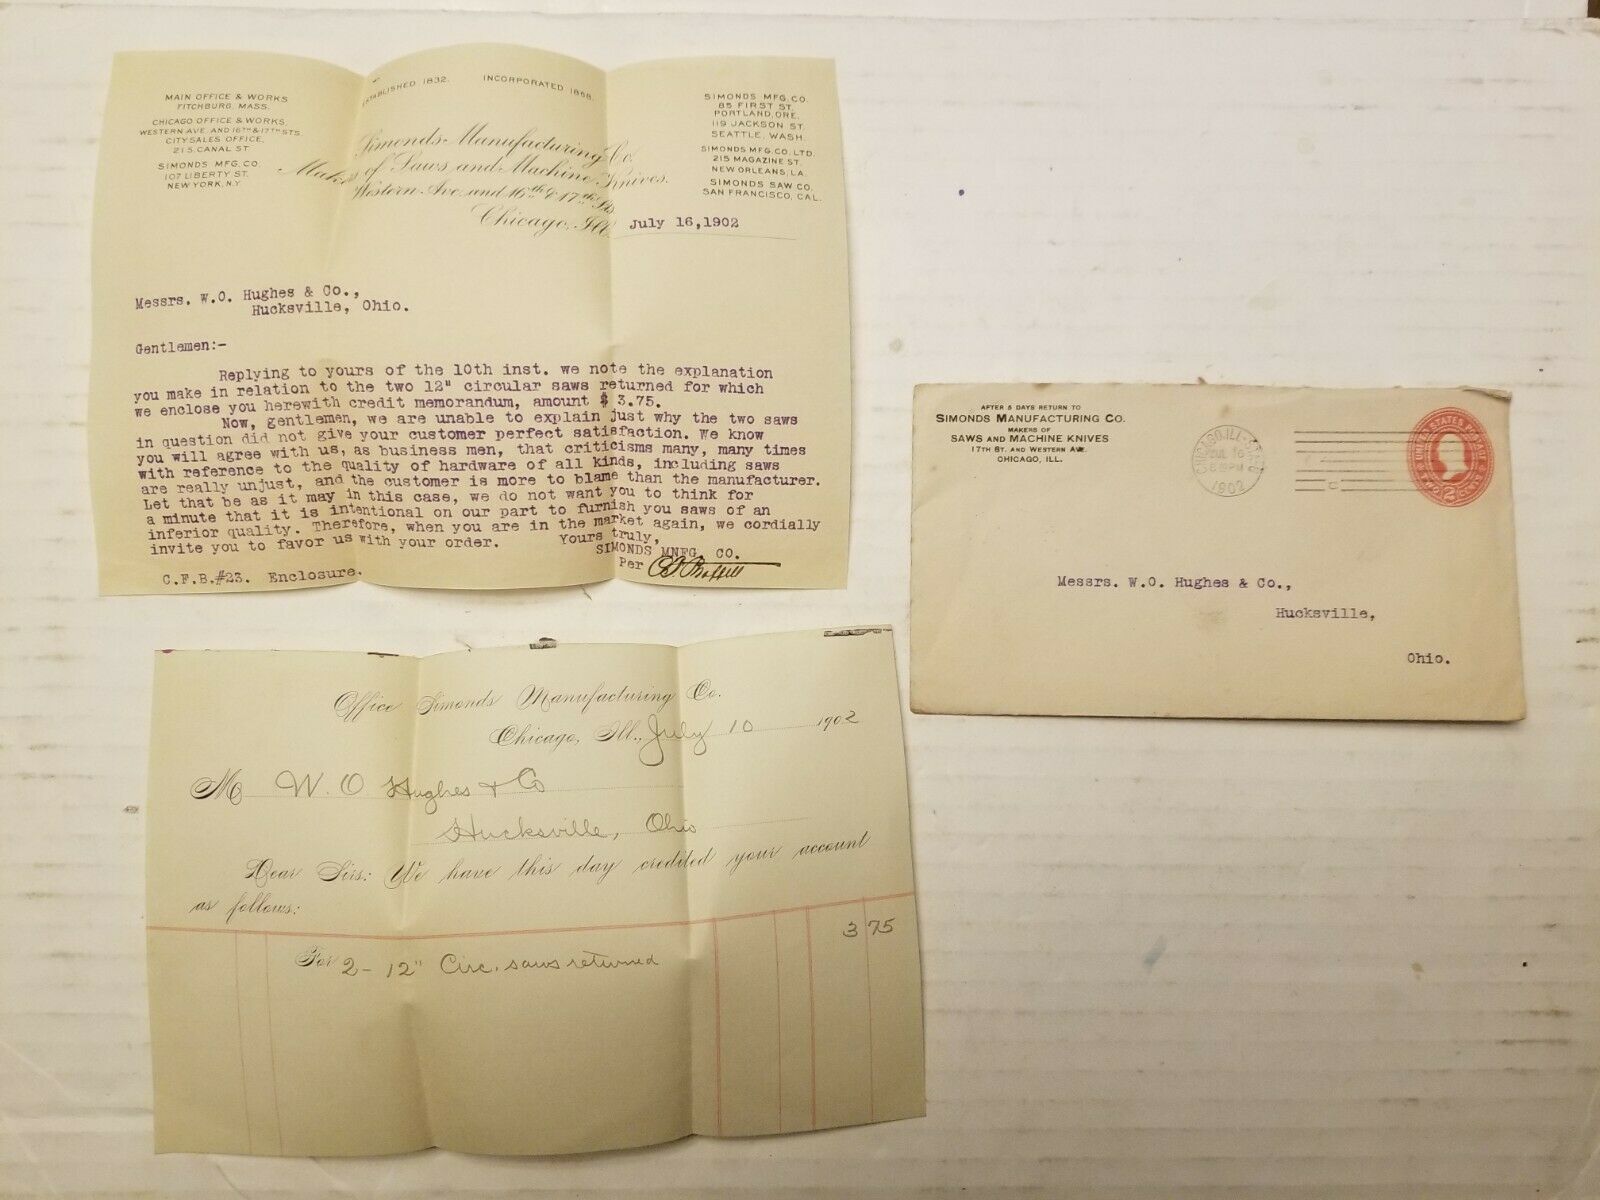 ESTABLISHED 1832. INCORPORATED 1868.
MAIN OFFICE & WORKS
FITCHBURG, MASS.
CHICAGO OFFICE & WORKS,
WESTERN AVE. AND 16TH & 17TH STS.
CITY SALES OFFICE,
21 S. CANAL ST
SIMONDS MFG. CO.
107 LIBERTY ST.
NEW YORK, N.Y
Simonds Manufacturing Co.
Makers of Saws and Machine Knives.
Western Ave. and 16th & 17th Sts.
Chicago, Ill. July 16,1902
SIMONDS MFG. CO.
85 FIRST ST.
PORTLAND, ORE.
119 JACKSON ST.
SEATTLE, WASH.
SIMONDS MFG. CO. LTD.
215 MAGAZINE ST.
NEW ORLEANS, LA.
SIMONDS SAW CO.
SAN FRANCISCO, CAL.
Messrs. W.O. Hughes & Co.,
Hucksville, Ohio.
Gentlemen:-
Replying to yours of the 10th inst. we note the explanation
you make in relation to the two 12" circular saws returned for which
we enclose you herewith credit memorandum, amount $ 3.75.
Now, gentlemen, we are unable to explain just why the two saws
in question did not give your customer perfect satisfaction. We know
you will agree with us, as business men, that criticisms many, many times
with reference to the quality of hardware of all kinds, including saws
are really unjust, and the customer is more to blame than the manufacturer.
Let that be as it may in this case, we do not want you to think for
a minute that it is intentional on our part to furnish you saws of an
inferior quality. Therefore, when you are in the market again, we cordially
invite you to favor us with your order. Yours truly,
SIMONDS MNFG. CO.
Per
C.F.B.#23. Enclosure.
Office Simonds Manufacturing Co.
Chicago, Ill., July 10 1902
M W. O Hughes & Co
Hucksville, Ohio
Dear Sirs: We have this day credited your account
as follows:
For 2 - 12" Circ. saws returned 3 75
AFTER 5 DAYS RETURN TO
SIMONDS MANUFACTURING CO.
MAKERS OF
SAWS AND MACHINE KNIVES
17TH ST. AND WESTERN AVE.
CHICAGO, ILL.
CHICAGO, ILL.
JUL 16
PM
1902
UNITED STATES POSTAGE
TWO 2 CENTS
Messrs. W.O. Hughes & Co.,
Hucksville,
Ohio.